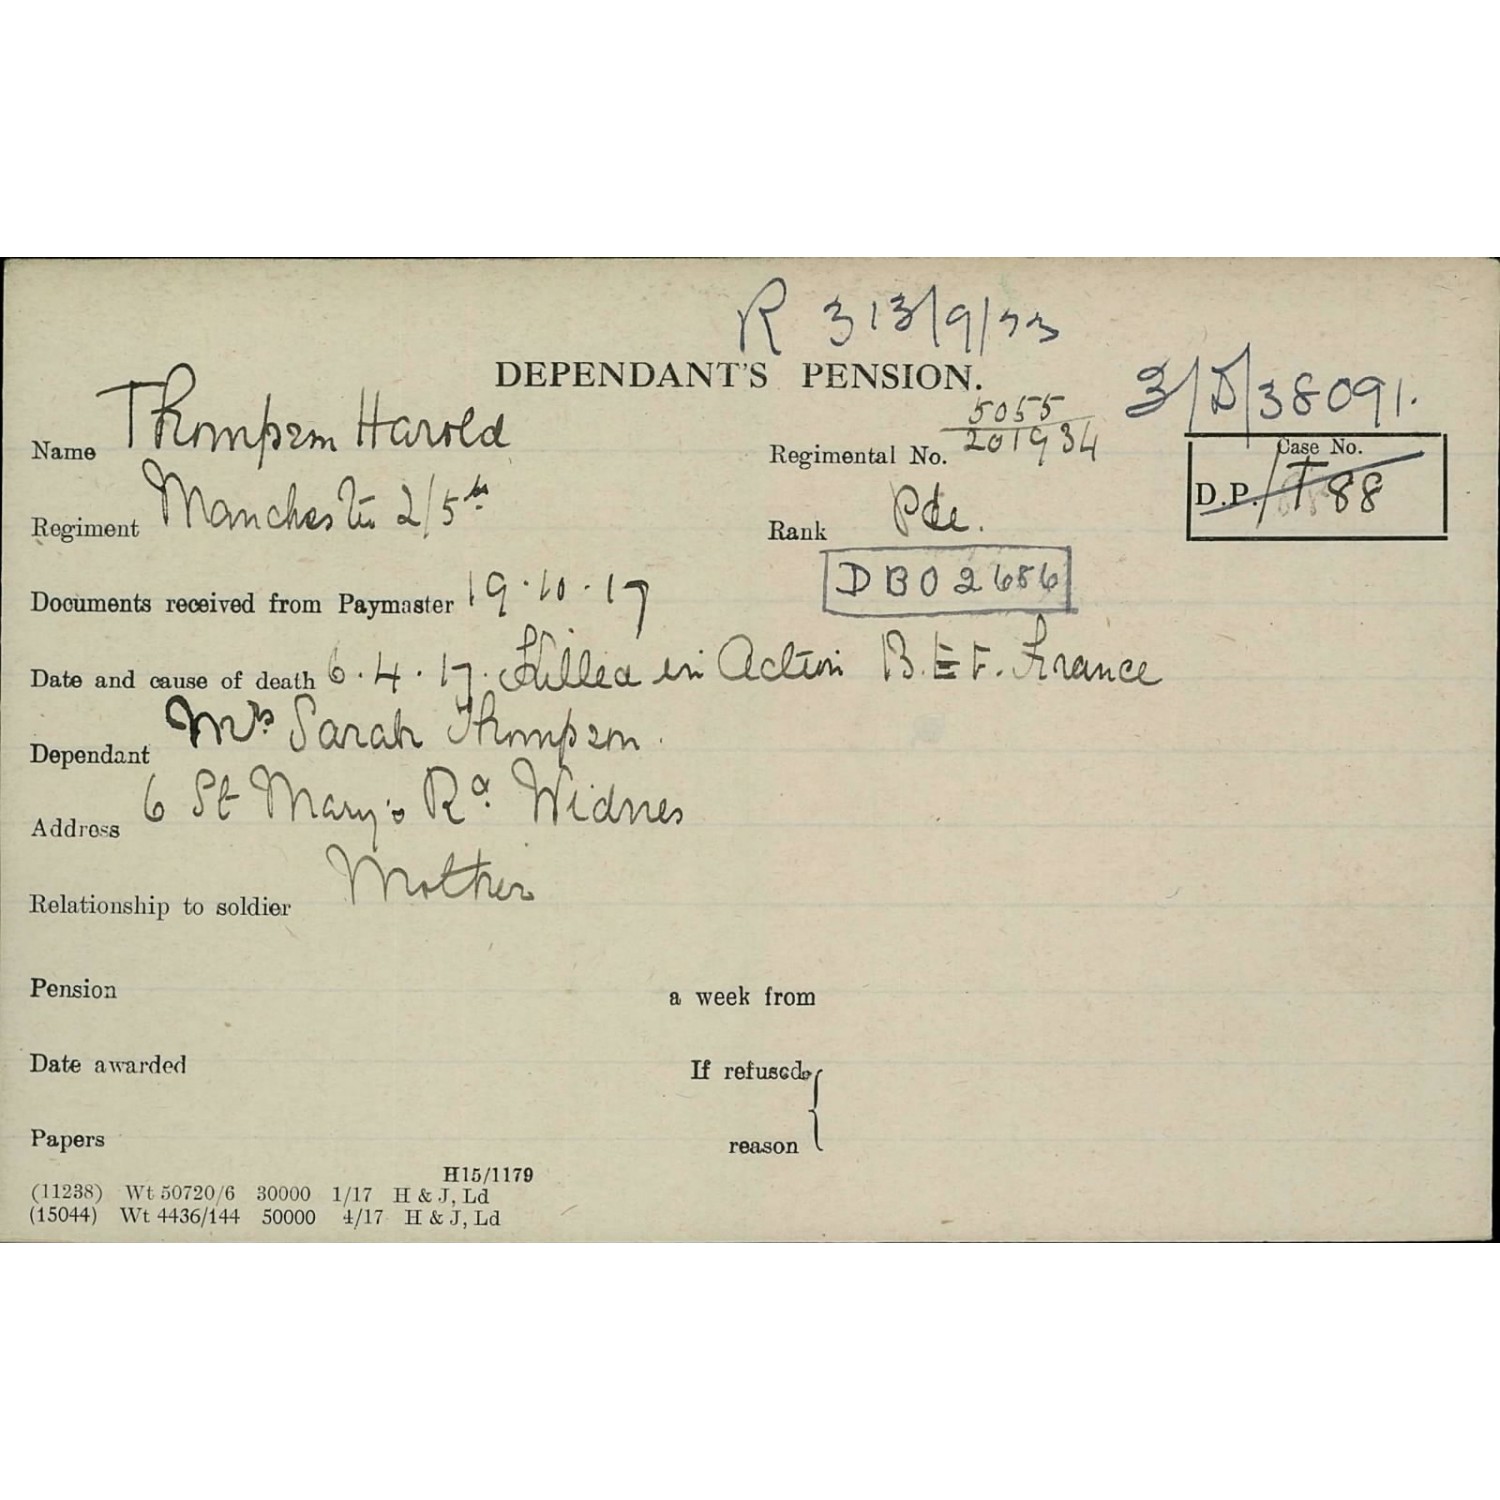 R 3 13/9/33
DEPENDANT'S PENSION.
3/D/38091.
Name Thompson Harold
Regimental No. 5055
201934
Case No.
D.P. /T 88
Regiment Manchester 2/5th
Rank Pte.
DBO 2686
Documents received from Paymaster 19.10.17
Date and cause of death 6.4.17. Killed in Action B.E.F. France
Dependant Mrs Sarah Thompson.
Address 6 St Mary's Rd. Widnes
Relationship to soldier Mother
Pension a week from
Date awarded If refused,
Papers reason
H15/1179
(11238) Wt 50720/6 30000 1/17 H & J, Ld
(15044) Wt 4436/144 50000 4/17 H & J, Ld